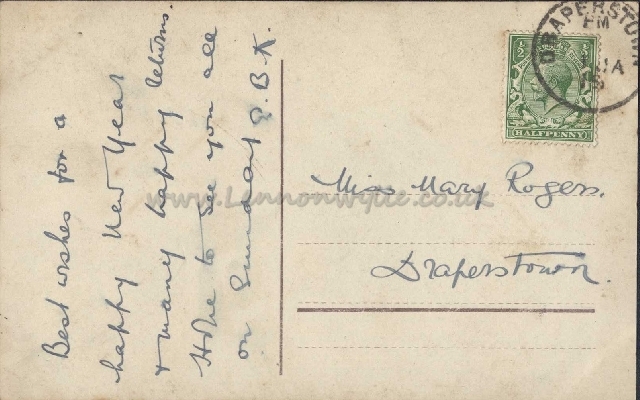 Best wishes for a
happy New Year
& many happy returns.
Hope to see you all
on Sunday E.B.K.
DRAPERSTOWN
PM
JA
HALFPENNY
Miss Mary Rogers.
Draperstown.
www.Lennonwylie.co.uk